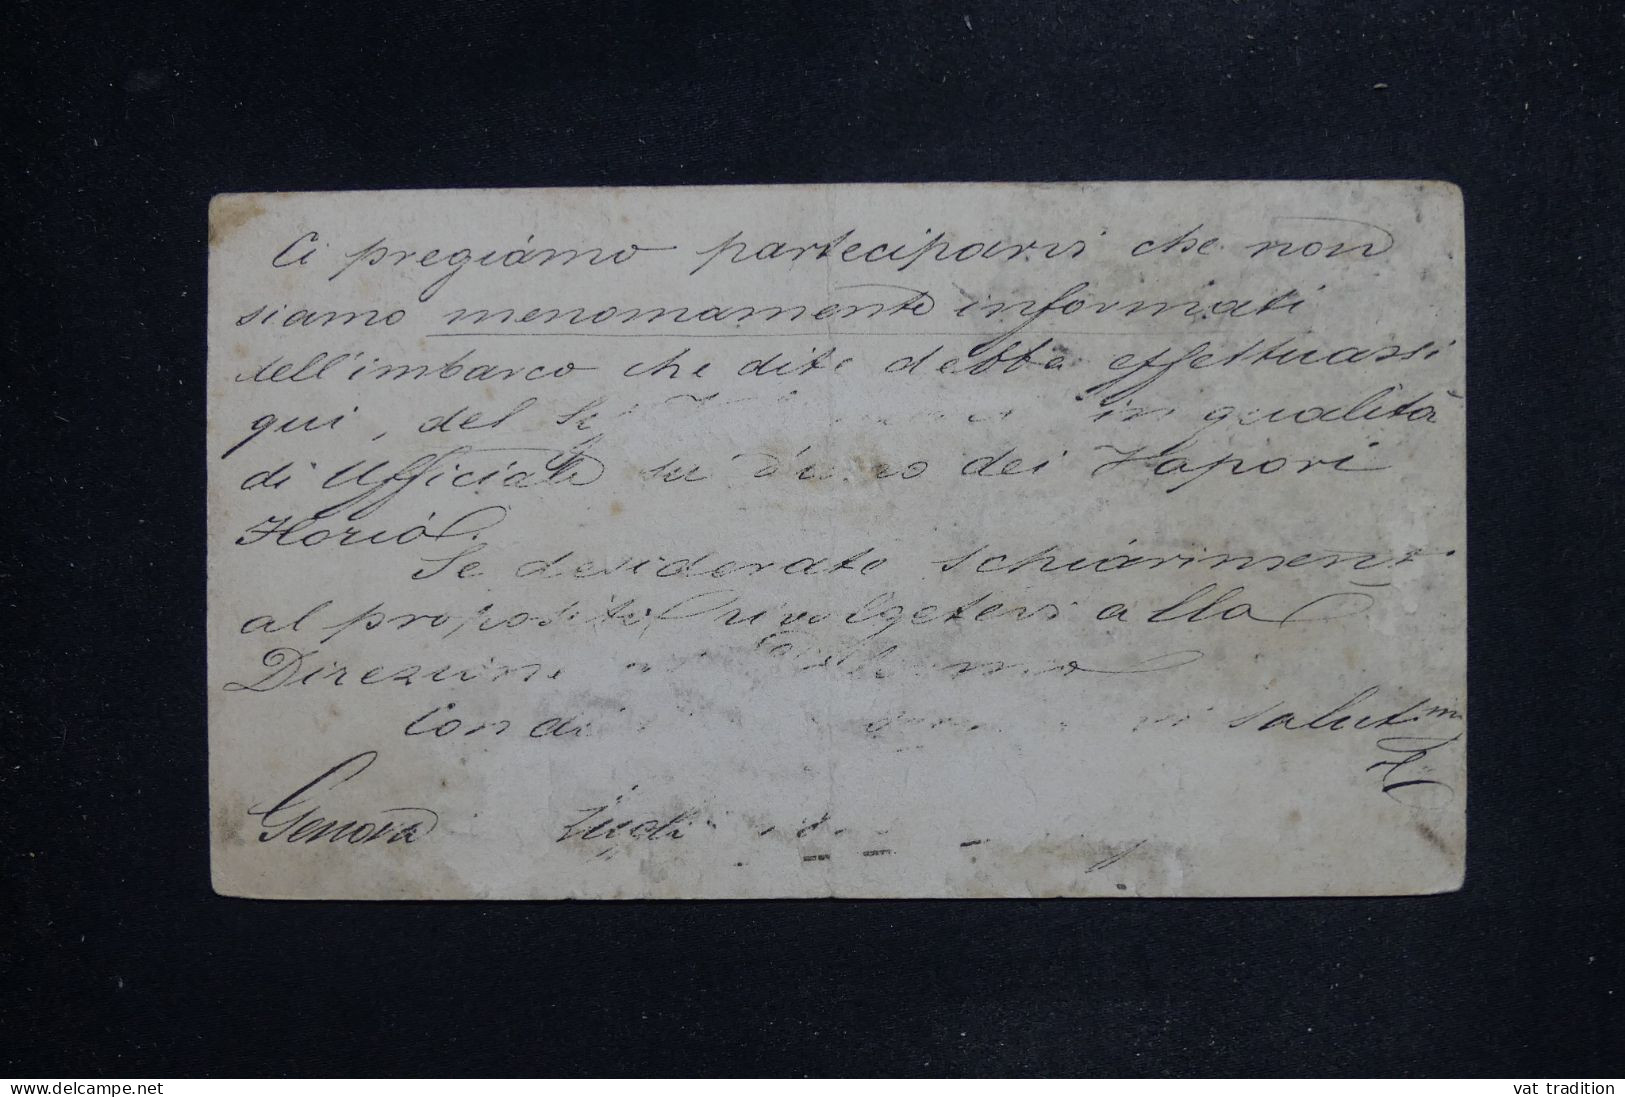 Ci pregiámo parteciparvi che non
siamo menomamente informati
dell'imbarco che dite debba effettuassi
qui, del Sig in qualità
di Ufficiale su dei Vapori
Florio.
Se desiderate schiarimenti
al proposito rivolgetevi alla
Direzione
Con salutm
Genova
delcampe.net
vat tradition